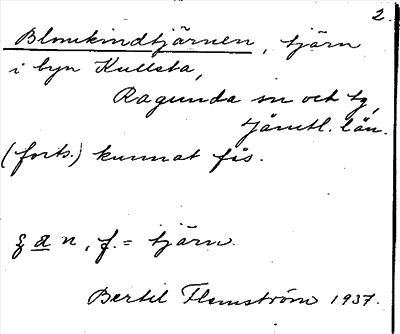 2.
Blomkindtjärnen, tjärn
i byn Kullsta,
Ragunda sn och tg,
Jämtl. län.
(forts.) kunnat fås.
n, f. = tjärn.
Bertil Flemström 1937.